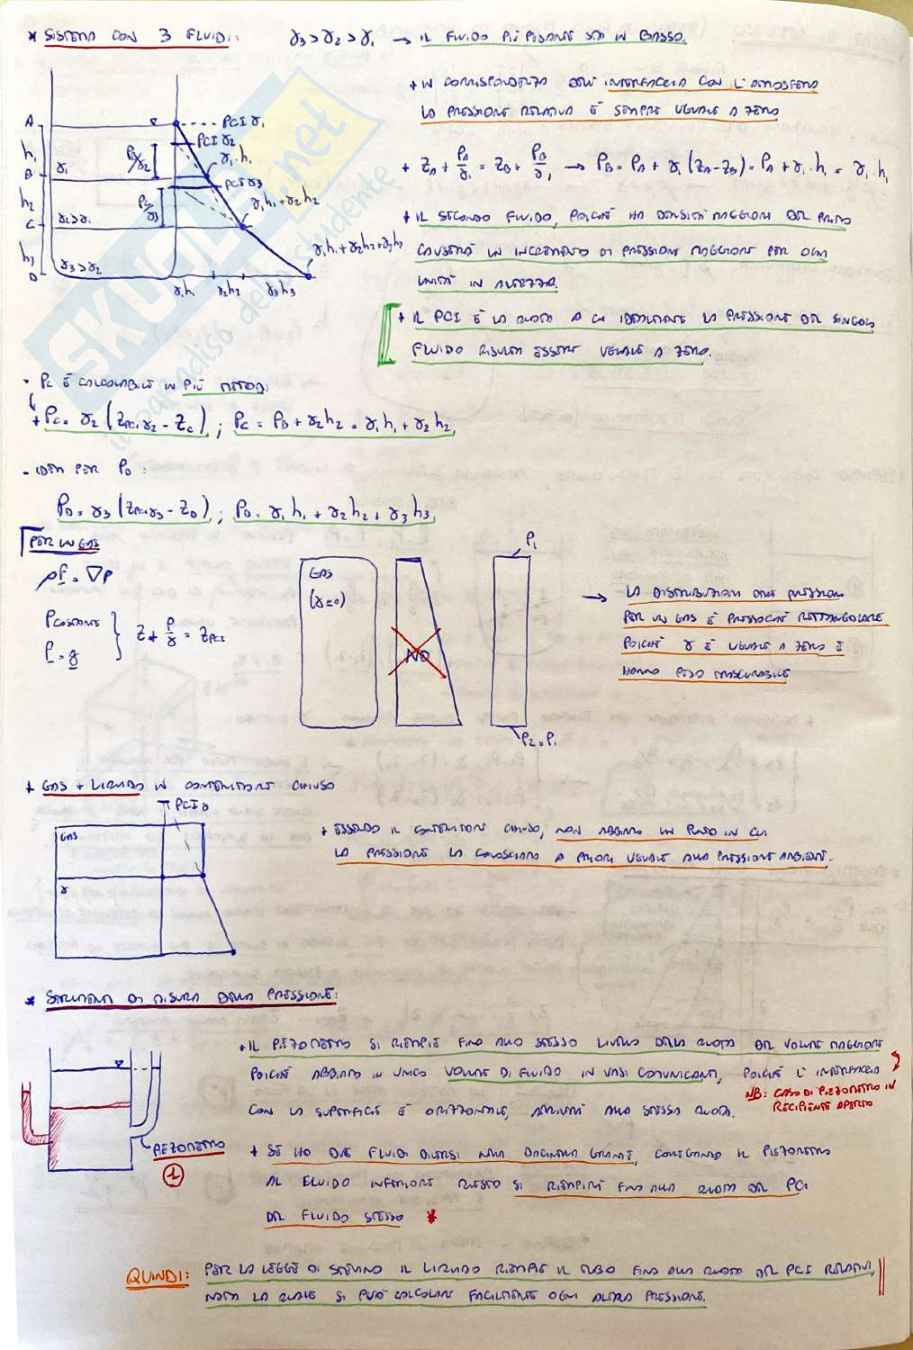 * SISTEMA CON 3 FLUIDI: γ3 > γ2 > γ1 → IL FLUIDO PIÙ PESANTE STA IN BASSO.
+ IN CORRISPONDENZA DELL'INTERFACCIA CON L'ATMOSFERA
LA PRESSIONE RELATIVA È SEMPRE UGUALE A ZERO
A
PCI γ1
PCI γ2
h1
γ1
P/γ2
γ1·h1
B
PCI γ3
h2
γ2>γ1
P/γ3
γ1h1+γ2h2
C
h3
γ3>γ2
γ1h1+γ2h2+γ3h3
D
γ1h1 γ2h2 γ3h3
+ ZA + PA/γ1 = ZB + PB/γ1 → PB = PA + γ1 (ZA-ZB) = PA + γ1·h1 = γ1·h1
+ IL SECONDO FLUIDO, POICHÉ HA DENSITÀ MAGGIORE DEL PRIMO
CAUSERÀ UN INCREMENTO DI PRESSIONE MAGGIORE PER OGNI
UNITÀ IN ALTEZZA.
+ IL PCI È LA QUOTA A CUI IDEALMENTE LA PRESSIONE DEL SINGOLO
FLUIDO RISULTA ESSERE UGUALE A ZERO.
SKUOLA.net
il paradiso dello studente
- PC È CALCOLABILE IN PIÙ METODI:
+ PC = γ2 (ZPCIγ2 - ZC) ; PC = PB + γ2h2 = γ1h1 + γ2h2
- IDEM PER PD :
PD = γ3 (ZPCIγ3 - ZD) ; PD = γ1h1 + γ2h2 + γ3h3
PER UN GAS
ρf = ∇P
ρ COSTANTE
f = g
Z + P/γ = ZPCI
GAS
(γ≅0)
NO
P1
P2=P1
→ LA DISTRIBUZIONE DELLE PRESSIONI
PER UN GAS È PRESSOCHÉ RETTANGOLARE
POICHÉ γ È UGUALE A ZERO E
HANNO PESO TRASCURABILE
+ GAS + LIQUIDO IN CONTENITORE CHIUSO
PCI
GAS
γ
+ ESSENDO IL CONTENITORE CHIUSO, NON ABBIAMO UN PUNTO IN CUI
LA PRESSIONE LA CONOSCIAMO A PRIORI UGUALE ALLA PRESSIONE AMBIENTE.
* STRUMENTI DI MISURA DELLA PRESSIONE:
+ IL PIEZOMETRO SI RIEMPIE FINO ALLO STESSO LIVELLO DELLA QUOTA DEL VOLUME MAGGIORE
POICHÉ ABBIAMO UN UNICO VOLUME DI FLUIDO IN VASI COMUNICANTI, POICHÉ L'INTERFACCIA
CON LA SUPERFICIE È ORIZZONTALE, ARRIVERÀ ALLA STESSA QUOTA.
NB: CASO DI PIEZOMETRO IN
RECIPIENTE APERTO
PIEZOMETRO
+ SE HO DUE FLUIDI DIVERSI COLLEGANDO IL PIEZOMETRO
AL FLUIDO INFERIORE QUESTO SI RIEMPIRÀ FINO ALLA QUOTA DEL PCI
DEL FLUIDO STESSO *
QUINDI: PER LA LEGGE DI STEVINO IL LIQUIDO RIEMPIE IL TUBO FINO ALLA QUOTA DEL PCI RELATIVO,
NOTA LA QUALE SI PUÒ CALCOLARE FACILMENTE OGNI ALTRA PRESSIONE.